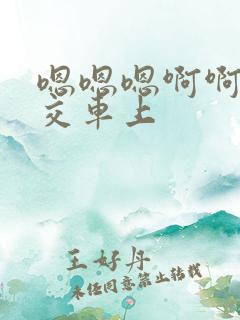 嗯嗯嗯啊啊
交车上
王好丹
未经同意禁止转载